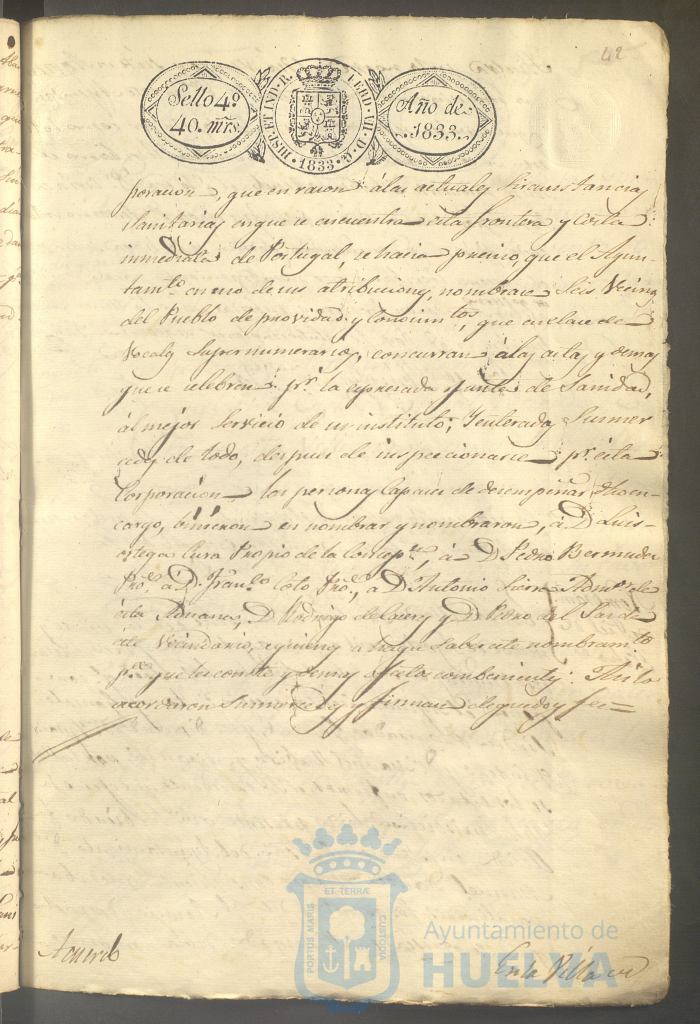 42
Sello 4º
40. mrs.
HISP. ET IND. R.
FERD. VII. D. G.
1833
Año de
1833.
poracion, que en racon á las actuales Sircunstancias
Sanitarias en que se encuentra esta frontera y costa
inmediata de Portugal, se hacia preciso, que el Ayun-
tamto. en uso de sus atribuciones, nombrase Seis Vecinos
del Pueblo de providad y conocimtos, que en clase de
Vocales Supernumerarios, concurran á las actas y demas
que se celebren pr. la expresada Junta de Sanidad,
al mejor Servicio de su instituto; Y enterados Sus mer
cedes de todo, despues de inspeccionarse pr. esta
Corporacion los personas capaces de desempeñar dho en-
cargo, binieron en nombrar y nombraron, á D. Luis
ortega Cura Propio de la Concepon, á D. Pedro Bermudez
Pbo. á D. Franco. Coto Pbo., a D. Antonio Sierra Admor de
esta Aduana, D. Rodrigo de y D. Pedro del
de Vecindario, a quienes se haga saber este nombramto
pa. que les conste y demas efectos combenientes. Asi lo
acordaron Sus mercedes y firman de que doy fee=
Acuerdo
En la Villa de
PORTUS MARIS
ET TERRÆ
CUSTODIA
Ayuntamiento de
HUELVA